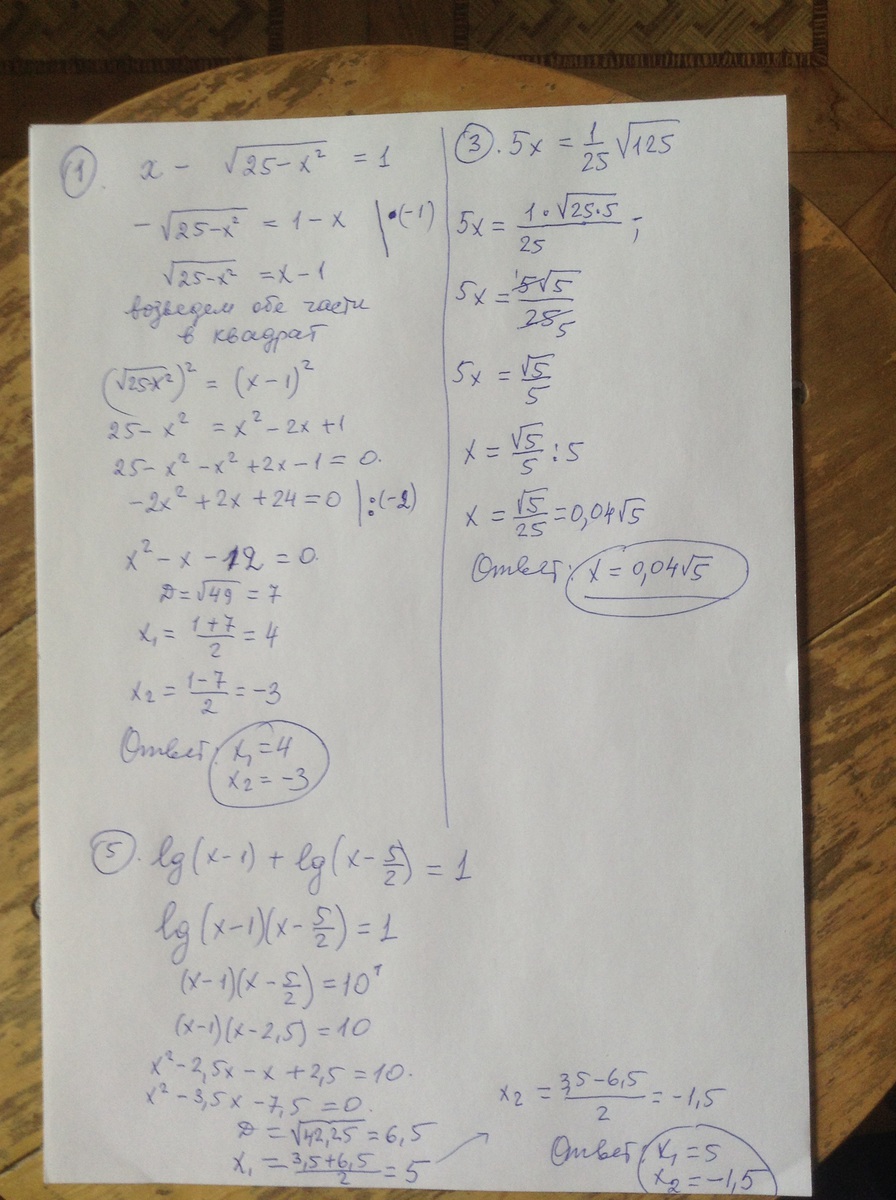 ①. x - √(25-x²) = 1
-√(25-x²) = 1-x |•(-1)
√(25-x²) = x-1
возведем обе части
в квадрат
(√(25-x²))² = (x-1)²
25-x² = x²-2x+1
25-x²-x²+2x-1=0.
-2x²+2x+24=0 |:(-2)
x²-x-12=0.
D=√49=7
x₁=(1+7)/2=4
x₂=(1-7)/2=-3
Ответ: x₁=4
x₂=-3
③. 5x = 1/25 √125
5x = (1•√(25•5))/25 ;
5x = 5√5/25 5
5x = √5/5
x = √5/5 : 5
x = √5/25 = 0,04√5
Ответ: x=0,04√5
⑤. lg(x-1) + lg(x-5/2) = 1
lg(x-1)(x-5/2) = 1
(x-1)(x-5/2) = 10¹
(x-1)(x-2,5) = 10
x²-2,5x-x+2,5=10.
x²-3,5x-7,5=0.
D=√42,25=6,5
x₁=(3,5+6,5)/2=5
x₂=(3,5-6,5)/2=-1,5
Ответ: x₁=5
x₂=-1,5